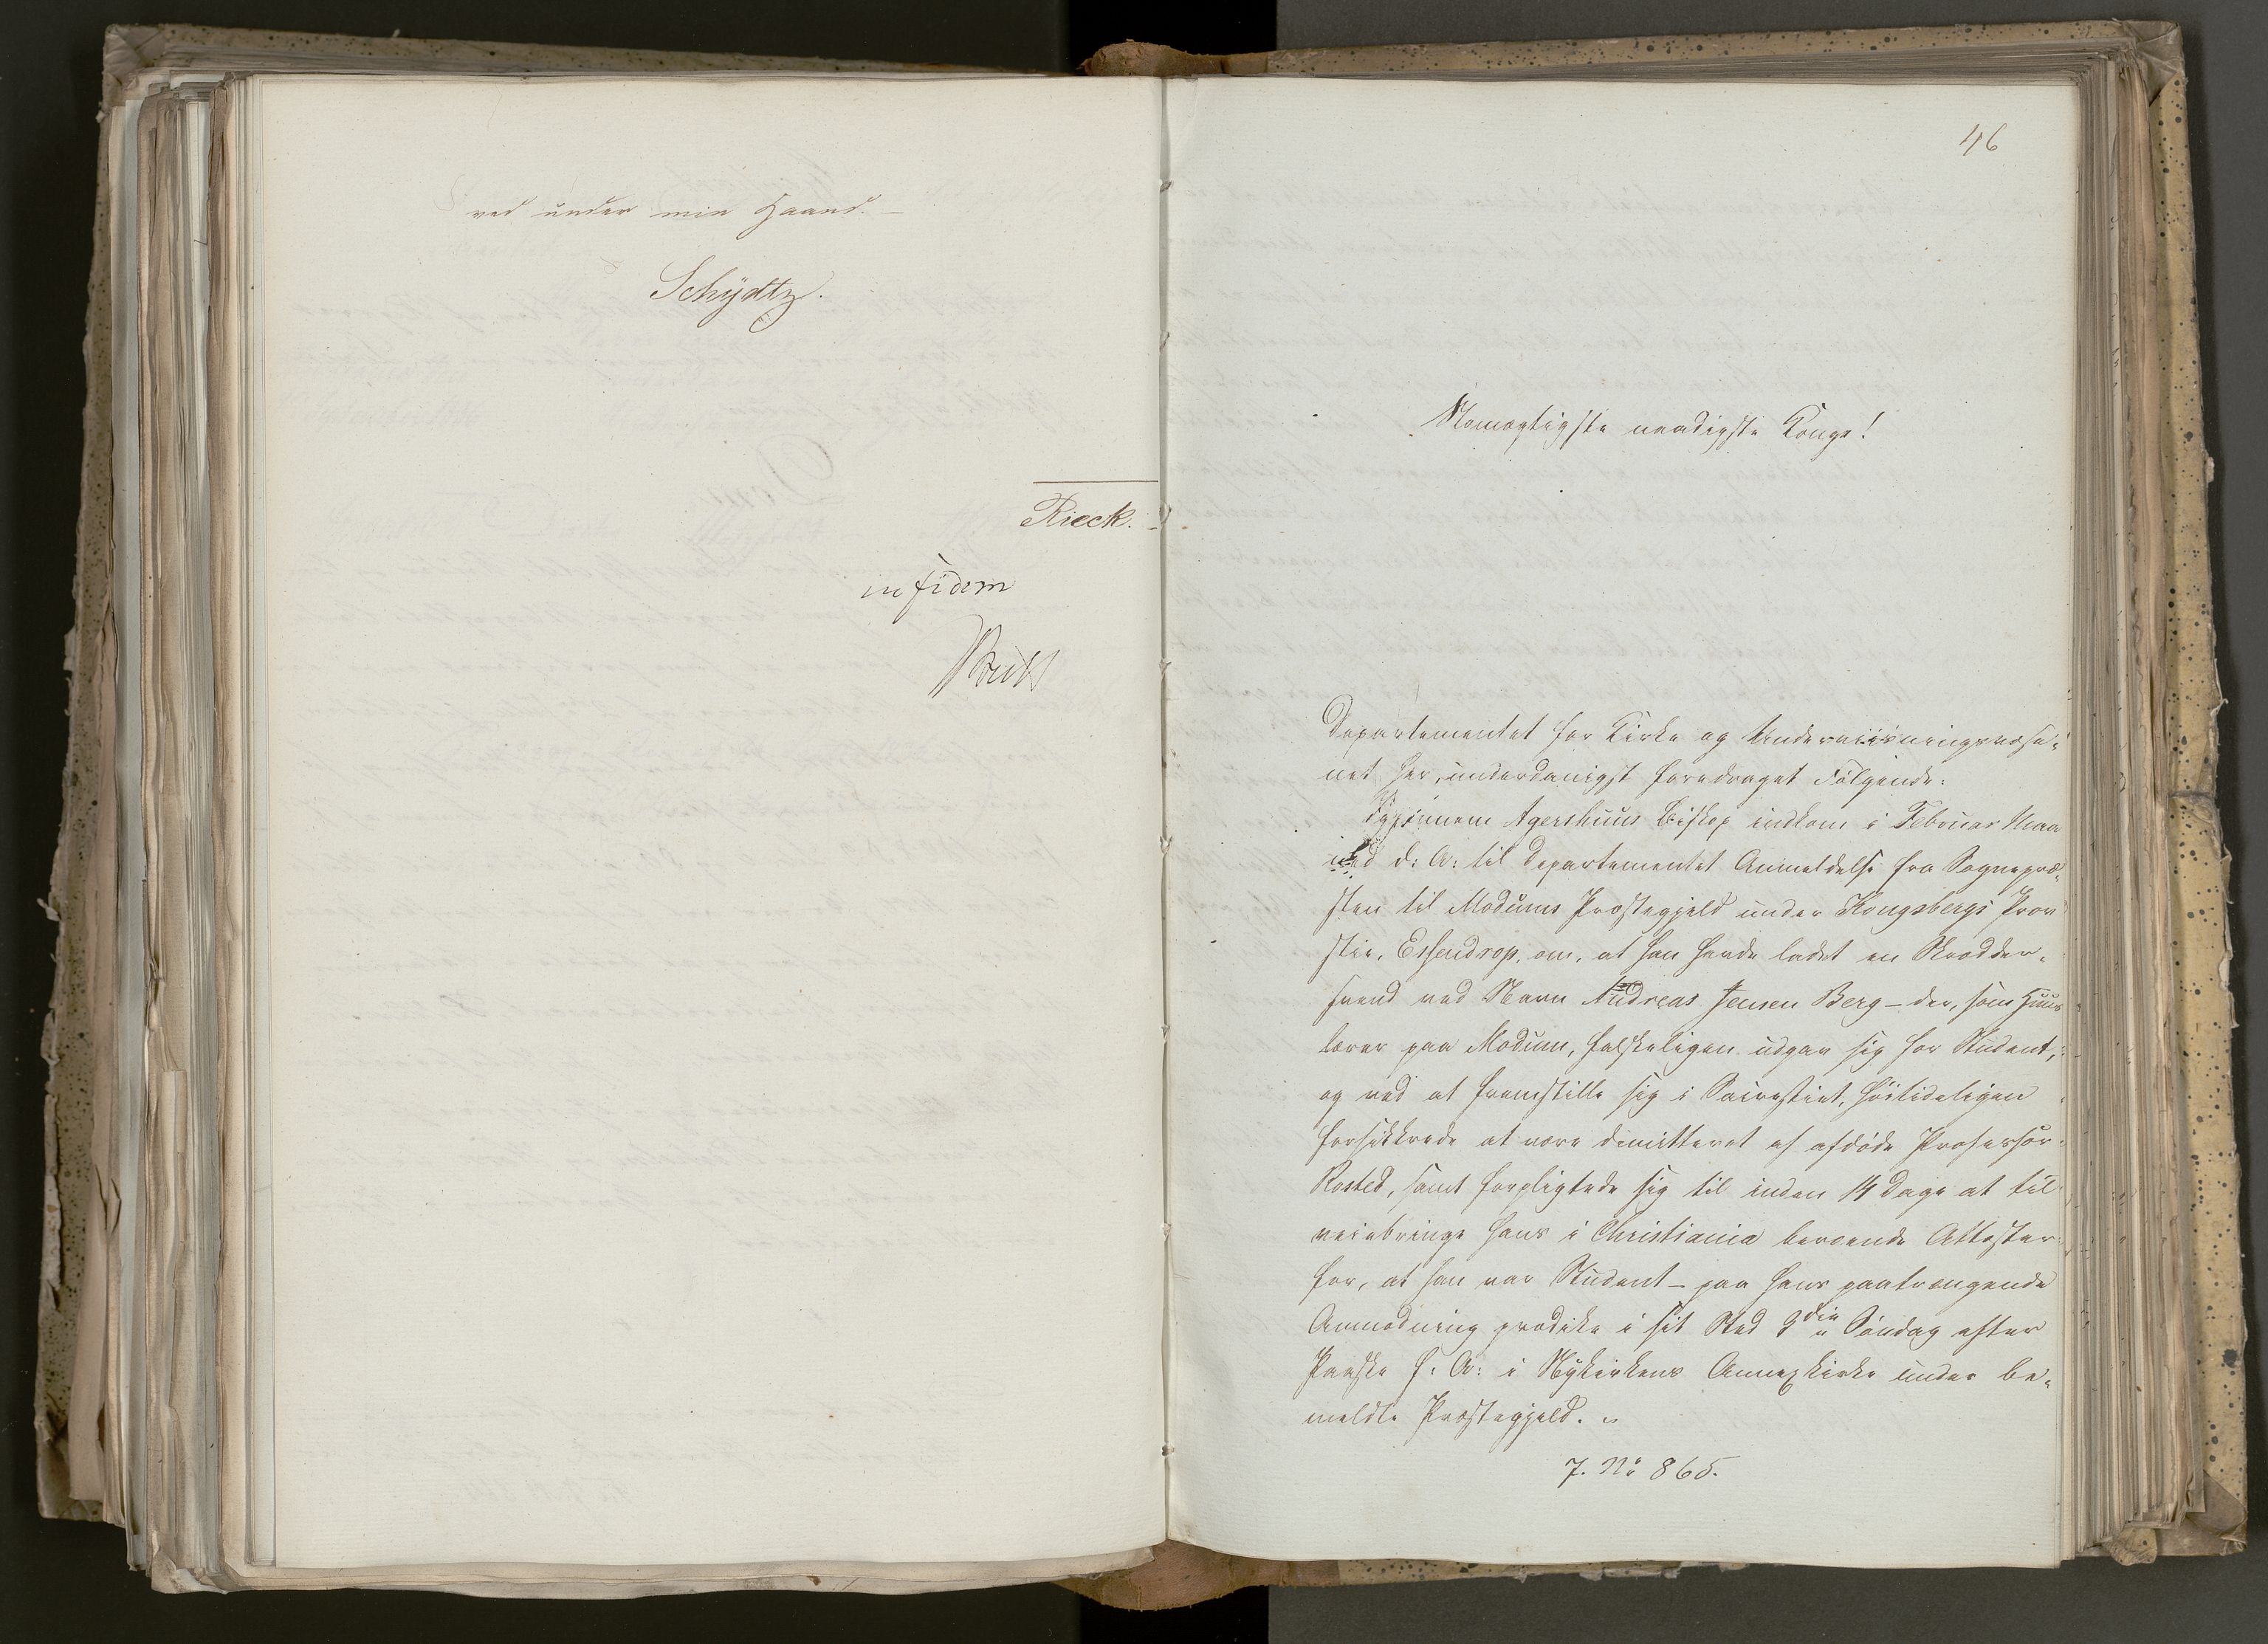 ved under min Haand. –
Schÿdtz.
Rieck.
in fidem
46
Stormægtigste naadigste Konge!
Departementet for Kirke og Underviisningsvæse-
net har underdanigst foredraget Følgende:
Igjennem Agershuus Biskop indkom i Februar Maa
ned d: A: til Departementet Anmeldelse fra Sognepræ-
sten til Modums Præstegjeld under Kongsbergs Prov
stie, Essendrop, om, at han havde ladet en Skrædder-
svend ved Navn Andreas Jensen Berg – der, som Huus
lærer paa Modum, falskeligen udgav sig for Student,
og ved at fremstille sig i Sacrastiet, høitideligen
forsikkrede at være dimitteret af afdøde Professor
Rosted, samt forpligtede sig til inden 14 Dage at til
veiebringe hans i Christiania beroende Attester
for, at han var Student – paa hans paatrængende
Anmodning prædike i sit Sted 3die Søndag efter
Paaske f: A: i Nÿkirkens Annexkirke under be-
meldte Præstegjeld. "
7. No 865.